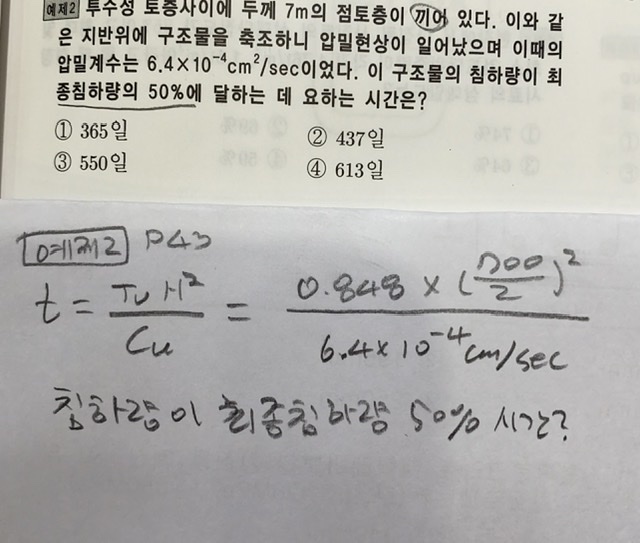 예제2 투수성 토층사이에 두께 7m의 점토층이 끼어 있다. 이와 같
은 지반위에 구조물을 축조하니 압밀현상이 일어났으며 이때의
압밀계수는 6.4×10⁻⁴cm²/sec이었다. 이 구조물의 침하량이 최
종침하량의 50%에 달하는 데 요하는 시간은?
① 365일 ② 437일
③ 550일 ④ 613일
예제2 P43
t = Tv H² / Cv = 0.848 × (700/2)² / 6.4×10⁻⁴cm/sec
침하량이 최종침하량 50% 시간?